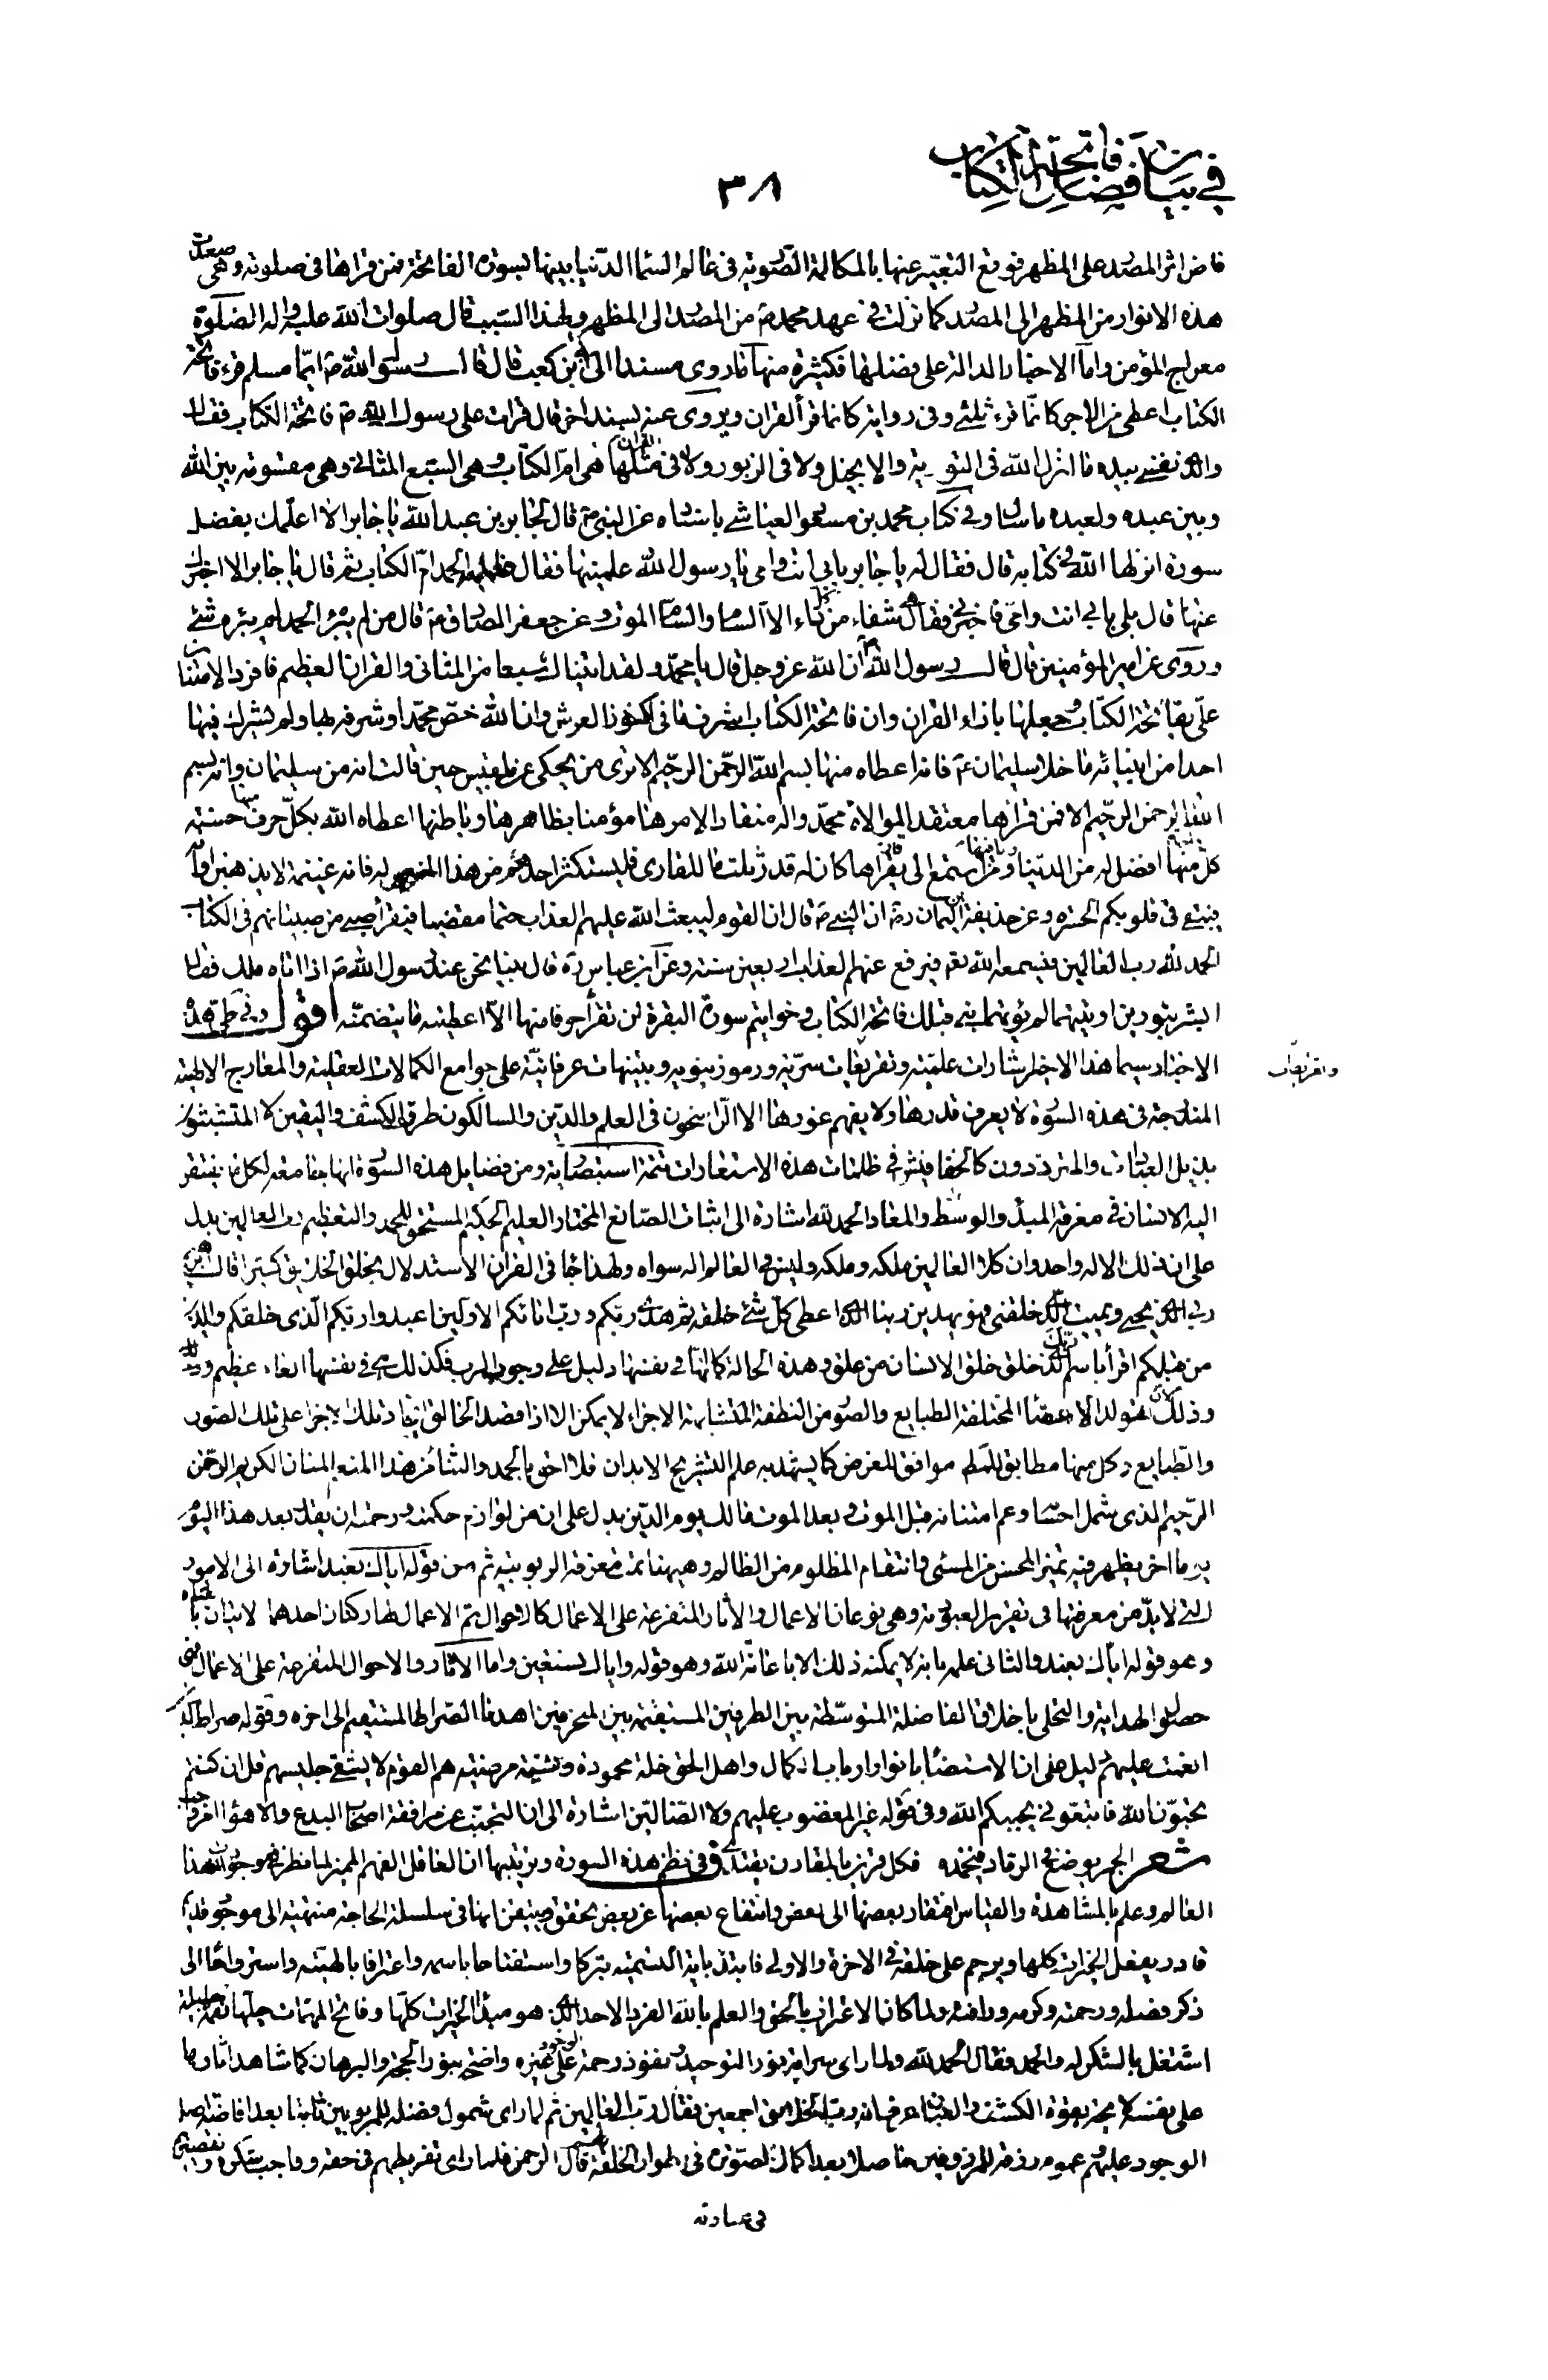 في بيان فضائل فاتحة الكتاب
٣٨
فاض اثر المصدر على المظهر فوقع التعبير عنها بالمكالمة الصوتية في عالم السماء الدنيا بينها بسورة الفاتحة فمن قراها في صلوته وهي صعدت
هذه الانوار من المظهر الى المصدر كما نزلت في عهد محمد ص من المصدر الى المظهر ولهذا السبب قال صلوات الله عليه واله الصلوة
معراج المؤمن واما الاخبار الدالة على فضلها فكثيرة منها ما روى مسندا الى ابي بن كعب قال قال رسول الله ص ايما مسلم قرء فاتحة
الكتاب اعطى من الاجر كانما قرء ثلثي وفي رواية كانما قرأ القران ويروى عنه بسند اخر قال قرات على رسول الله ص فاتحة الكتاب فقال
والذي نفسي بيده ما انزل الله في التورية والا نجيل ولا في الزبور ولا في القران مثلها هي ام الكتاب وهي السبع المثاني وهي مقسومة بين الله
وبين عبده ولعبده ما سال وفي كتاب محمد بن مسعود العياشي باسناده عن النبي ص قال لجابر بن عبد الله يا جابر الا اعلمك بفضل
سورة انزلها الله في كتابه قال فقال له يا جابر بابي انت وامي يا رسول الله علمنيها فقال فعلمه الحمد ام الكتاب ثم قال يا جابر الا اخبرك
عنها قال بلى بابي انت وامي فاخبرني فقال هي شفاء من كل داء الا السام والسام الموت وعن جعفر الصادق ع قال من لم يبرئه الحمد لم يبرئه شيء
وروى عن امير المؤمنين قال قال رسول الله ص ان الله عز وجل قال يا محمد ولقد اتيناك سبعا من المثاني والقران العظيم فافرد الامتنان
علي بفاتحة الكتاب وجعلها بازاء القران وان فاتحة الكتاب اشرف ما في كنوز العرش وان الله خص محمدا وشرفه بها ولم يشرك فيها
احدا من انبيائه ما خلا سليمان ع فانه اعطاه منها بسم الله الرحمن الرحيم الا ترى من يحكى عن بلقيس حين قالت انه من سليمان وانه بسم
الله الرحمن الرحيم الا فمن قراها معتقدا لموالاة محمد واله منقادا لامرها مؤمنا بظاهرها وباطنها اعطاه الله بكل حرف منها حسنة
كل منها افضل له من الدنيا وما فيها ومن استمع الى قارئ يقراها كان له قدر ثلث ما للقارى فليستكثر احدكم من هذا الخير له فانه غنيمة لا يذهبن اوانه
فيبقى في قلوبكم الحسرة وعن حذيفة بن اليمان ره ان النبي ص قال ان القوم ليبعث الله عليهم العذاب حتما مقضيا فيقرأ صبي من صبيانهم في الكتاب
الحمد لله رب العالمين فيسمعه الله تع فيرفع عنهم العذاب اربعين سنة وعن ابن عباس ره قال بينا نحن عند رسول الله ص اذا اتاه ملك فقال
ابشر بنورين اوتيتهما لم يؤتهما نبي قبلك فاتحة الكتاب وخواتيم سورة البقرة لن تقرأ حرفا منها الا اعطيته ما يتضمنه اقول وفي طي هذه
الاخبار سيما هذا الاخير اشارات علمية وتفريعات سرية ورموز نبوية وتنبيهات عرفانية على جوامع الكمالات العقلية والمعارج الالهية
وتعريضات
المندرجة في هذه السورة لا يعرف قدرها ولا يفهم غورها الا الراسخون في العلم والدين والسالكون طرق الكشف واليقين لا المتشبثون
بذيل العبارات والمترددون كالخفافيش في ظلمات هذه الاستعارات تتمة استبصارية ومن فضايل هذه السورة انها جامعة لكل ما يفتقر
اليه الانسان في معرفة المبدأ والوسط والمعاد الحمد لله اشارة الى اثبات الصانع المختار العليم الحكيم المستحق للحمد والتعظيم رب العالمين يدل
على ان ذلك الاله واحد وان كل العالمين ملكه وملكه وليس في العالم اله سواه ولهذا جاء في القران الاستدلال بخلق الخلايق كثيرا قال ابرهيم
ربي الذي يحيي ويميت الذي خلقني فهو يهدين ربنا الذي اعطى كل شئ خلقه ثم هدى ربكم ورب ابائكم الاولين اعبدوا ربكم الذي خلقكم والذين
من قبلكم اقرأ باسم ربك الذي خلق خلق الانسان من علق وهذه الحالة كما انها في نفسها دليل على وجود الرب فكذلك هي في نفسها انعام عظيم
وذلك لان تولد الاعضاء المختلفة الطبايع والصور من النطفة المتشابهة الاجزاء لا يمكن الا اذا قصد الخالق ايجاد تلك الاجزاء على تلك الصور
والطبايع وكل منها مطابق للمطلوب موافق للغرض كما يشهد به علم التشريح الابدان فلا احق بالحمد والثناء من هذا المنعم المنان الكريم الرحمن
الرحيم الذي شمل احسانه وعم امتنانه قبل الموت وبعد الموت مالك يوم الدين يدل على ان من لوازم حكمته ورحمته ان يقدر بعد هذا اليوم
يوما اخر يظهر فيه تميز المحسن من المسئ وانتقام المظلوم من الظالم وهيهنا تمت معرفة الربوبية ثم من قوله اياك نعبد اشارة الى الامور
التي لا بد من معرفتها في تقرير العبودية وهي نوعان الاعمال والاثار المتفرعة على الاعمال كالاحوال ثم الاعمال لها ركنان احدهما الاتيان بالعبادة
وهو قوله اياك نعبد والثاني علمه بانه لا يمكنه ذلك الا باعانة الله وهو قوله واياك نستعين واما الاثار والاحوال المتفرعة على الاعمال فهي
حصول الهداية والتحلي بالاخلاق الفاضلة المتوسطة بين الطرفين المستقيمة بين المنحرفين اهدنا الصراط المستقيم الى اخره وقوله صراط الذين
انعمت عليهم دليل على ان الاستضاءة بانوار ارباب الكمال واهل الحق خلة محمودة وشيمة مرضية هم القوم لا يشقى جليسهم قل ان كنتم
تحبون الله فاتبعوني يحببكم الله وفي قوله غير المغضوب عليهم ولا الضالين اشارة الى ان التجنب عن مرافقة اصحاب البدع والاهواء امر واجب
شعر الجمر يوضع في الرماد فيخمد فكل قرين بالمقارن يقتدى وفي نظم هذه السورة وترتيبها ان العاقل الفهم المميز لما نظر في موجودات هذا
العالم وعلم بالمشاهدة والقياس افتقار بعضها الى بعض وانتفاع بعضها عن بعض تحقق وتيقن انها في سلسلة الحاجة منتهية الى موجود قديم
قادر يفعل الخيرات كلها ويرحم على خلقه في الاخرة والاولى فابتدأ باية التسمية تبركا واستفتاحا باسمه واعترافا بالهيته واسترواحا الى
ذكر فضله ورحمته وكرمه ورافته ولما كان الاعتراف بالحق والعلم بالله الفرد الاحد الذي هو مبدأ الخيرات كلها وفاتح المهمات جلها نعمة جليلة
اشتغل بالشكر له والحمد فقال الحمد لله ولما راى سراية نور التوحيد ونفوذ رحمة الوجود على غيره واضحة بنور الحجة والبرهان كما شاهد اثارها
على نفسه لا مجرد بقوة الكشف والعيان عرف انه رب الخلائق اجمعين فقال رب العالمين ثم لما راى شمول فضله للمربوبين ثابتا بعد افاضة اصل
الوجود عليهم وعموم رزقه للمرزوقين حاصلا بعد اكمال الصورة في اطوار الخلقة قال الرحمن فلما راى تفريطهم في حقه وواجب شكره وتقصيرهم
في عبادته